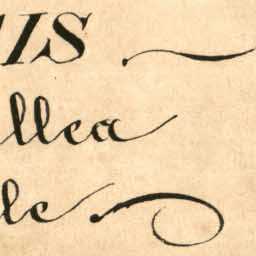 IIS
llea
le